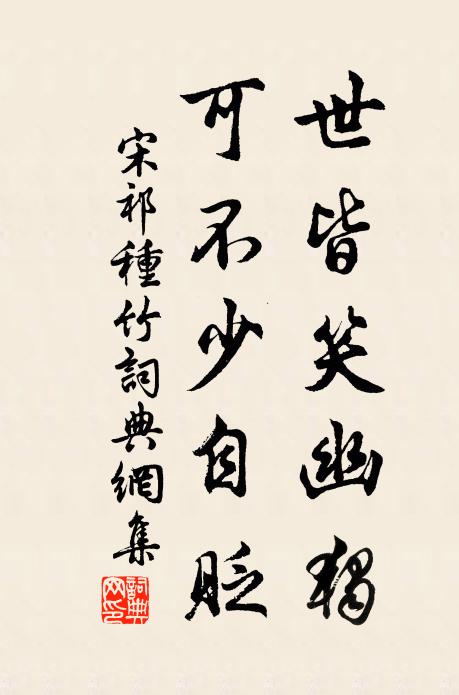 世皆笑幽獨
可不少自貶
宋祁種竹詞典網集
詞典網印